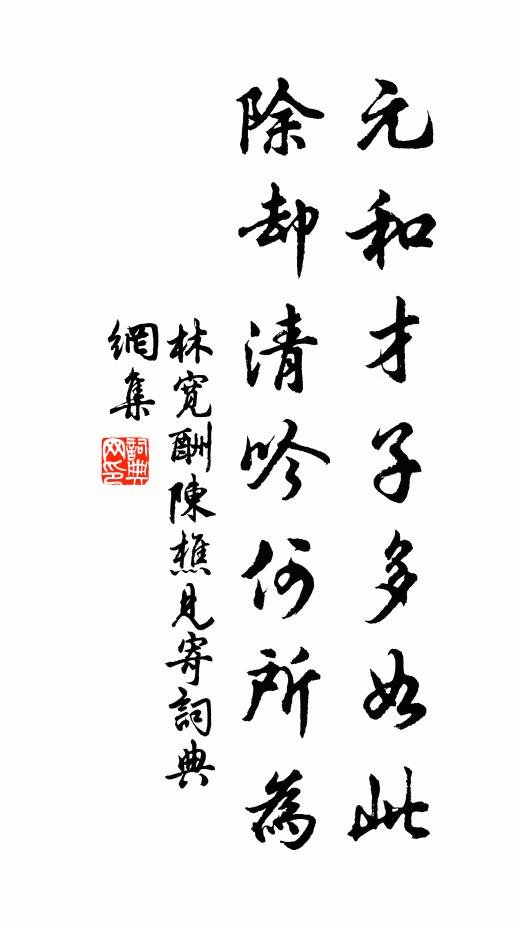 元和才子多如此
除却清吟何所為
林寬酬陳樵見寄詞典
網集
詞典
网印